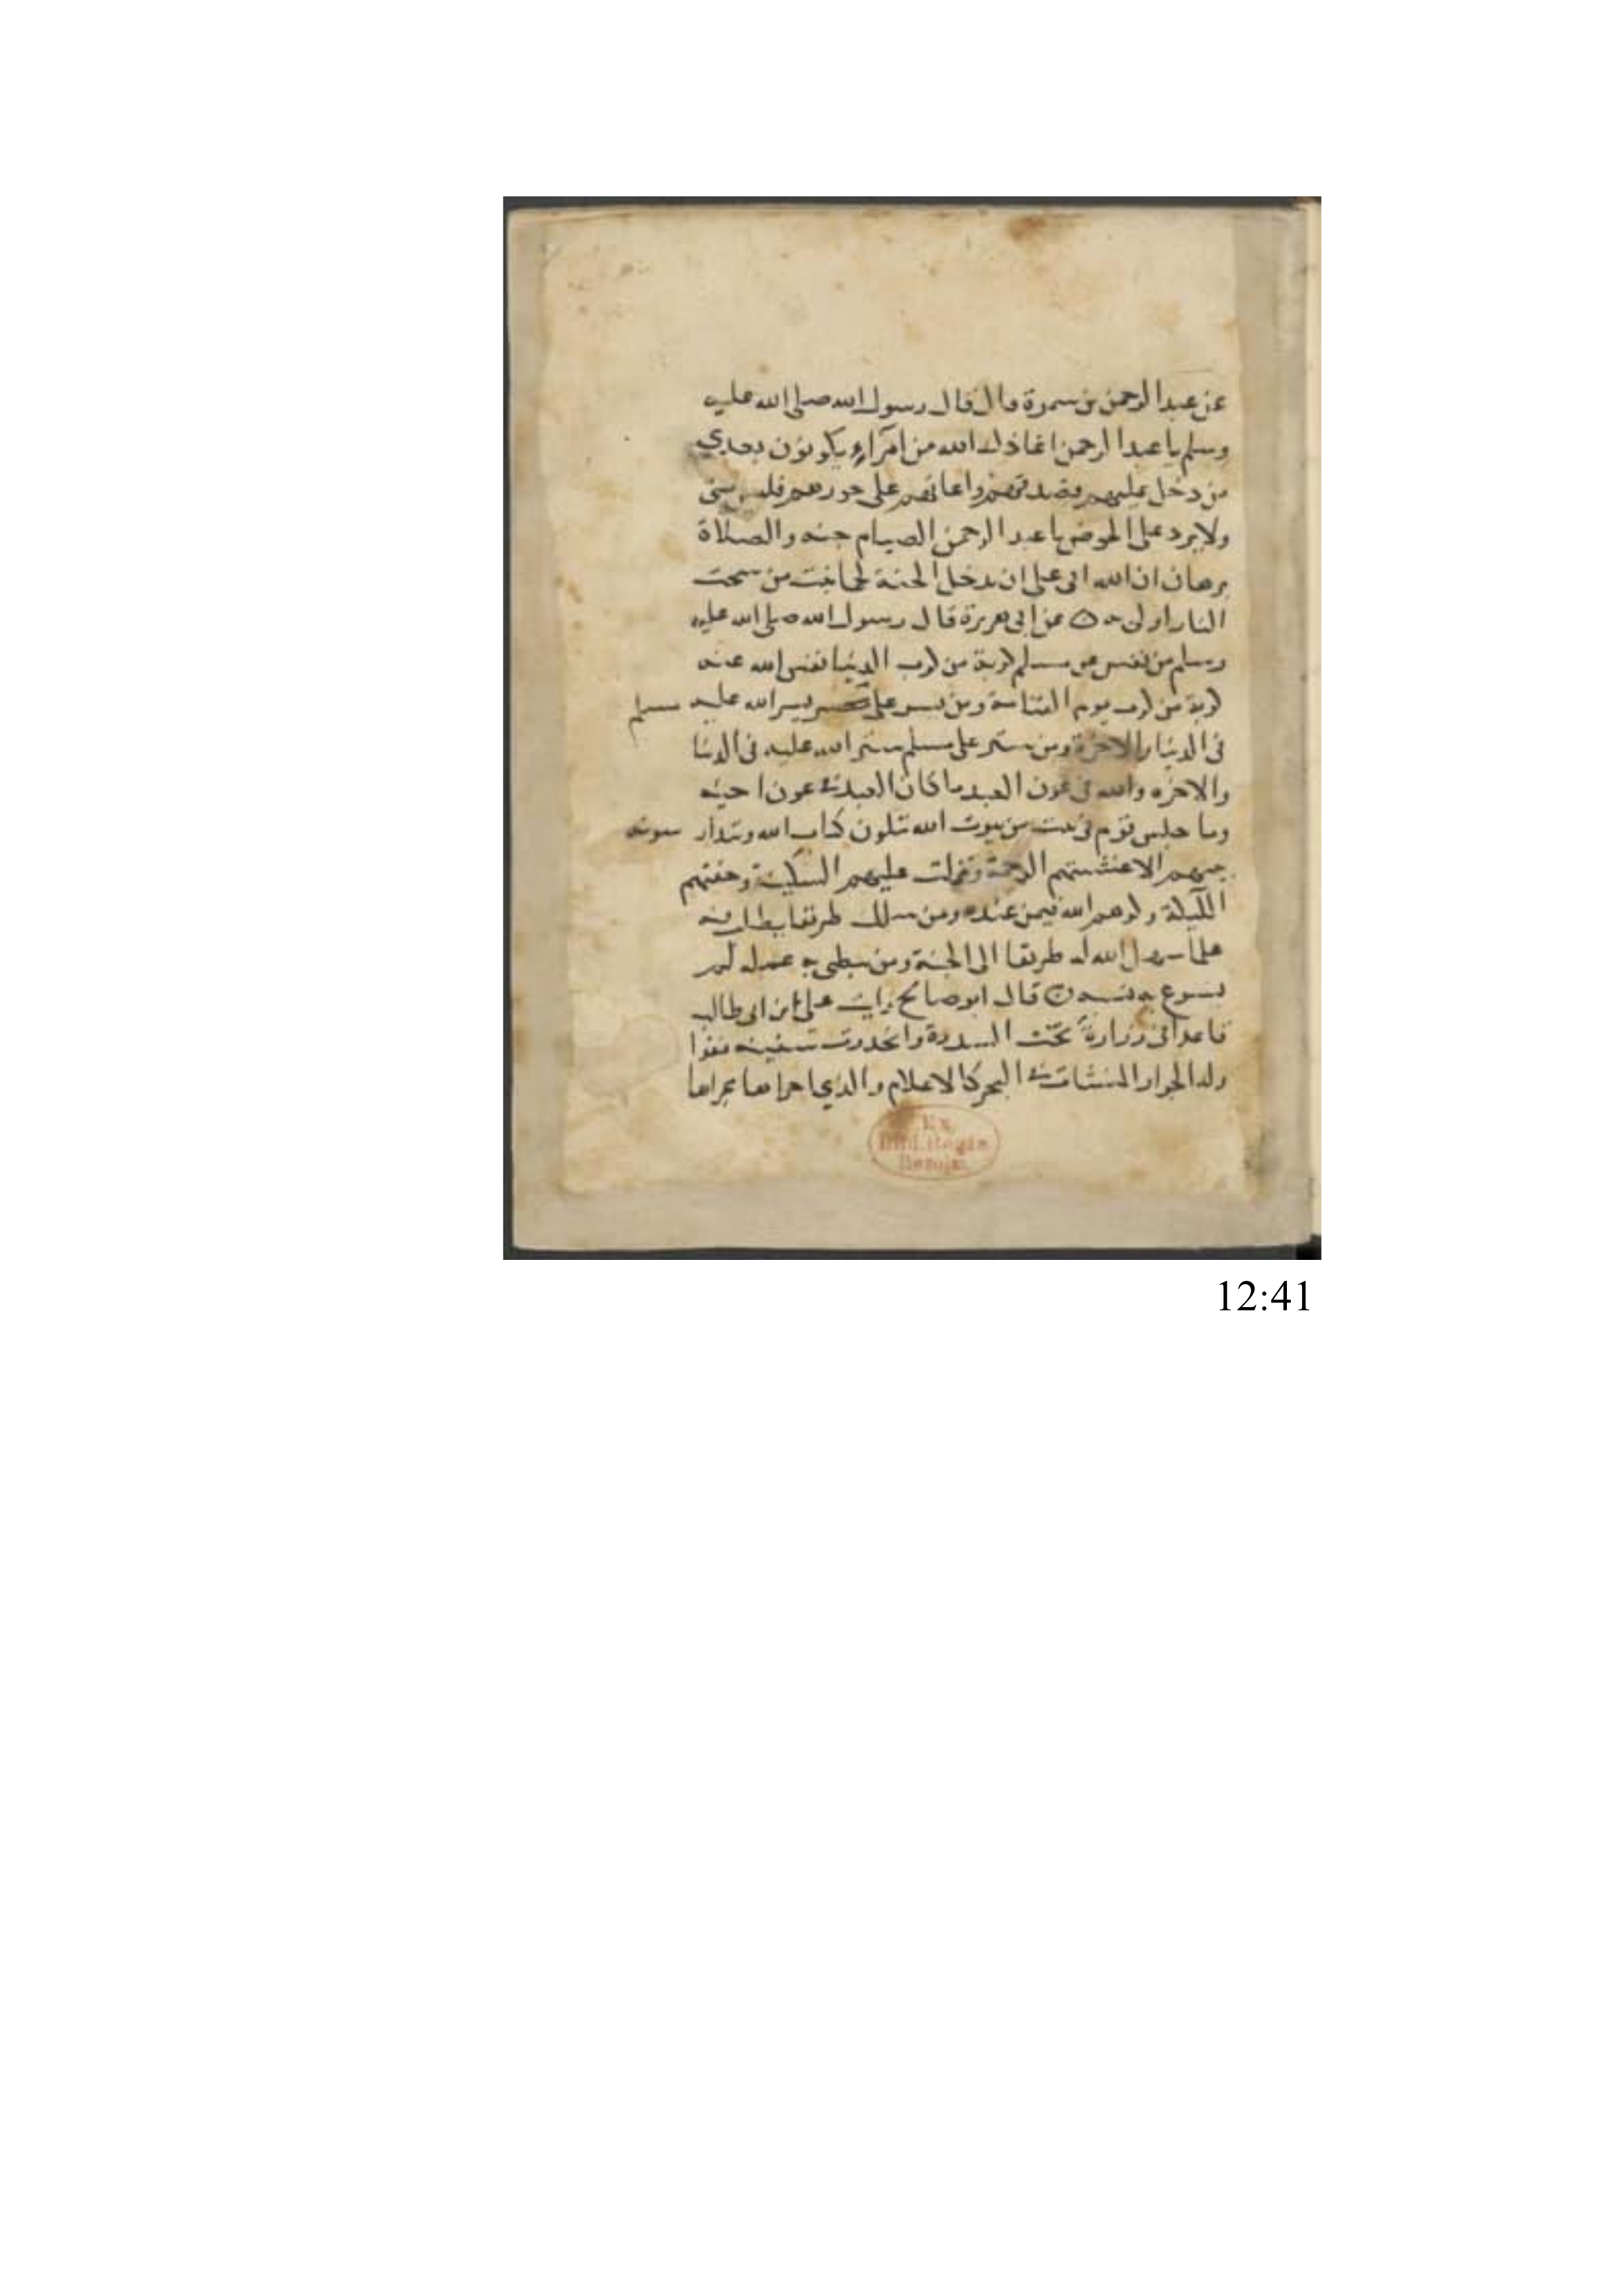 عن عبد الرحمن بن سمرة قال قال رسول الله صلى الله عليه
وسلم يا عبد الرحمن اعاذك الله من امرآء يكونون بعدي
من دخل عليهم وصدقهم واعانهم على جورهم فليس مني
ولا يرد على الحوض يا عبد الرحمن الصيام جنه والصلاة
برهان ان الله ابى على ان يدخل الجنة لحما نبت من سحت
النار اولى به عن ابي هريرة قال رسول الله صلى الله عليه
وسلم من نفس عن مسلم كربة من كرب الدنيا نفس الله عنه
كربة من كرب يوم القيامة ومن يسر على يسر الله عليه مسلم
في الدنيا والاخرة ومن ستر على مسلم ستر الله عليه في الدنيا
والاخره والله في عون العبد ما كان العبد في عون اخيه
وما جلس قوم في بيت من بيوت الله يتلون كتاب الله ويتدار سونه
بينهم الا غشيتهم الرحمة ونزلت عليهم السكينة وحفتهم
الملٓيكة وذكرهم الله فيمن عنده ومن سلك طريقا يطلب فيه
علما سهل الله له طريقا الى الجنة ومن يبطي به عمله لم
يسرع به نسبه قال ابو صالح رايت علي ابن ابي طالب
قاعدا في زرارة تحت السدرة وانحدرت سفينه فقرا
وله الجوار المنشات في البحر كالاعلام والذي اجراها مجراها
Ex
Bibl. Regia
Berolin.
12:41